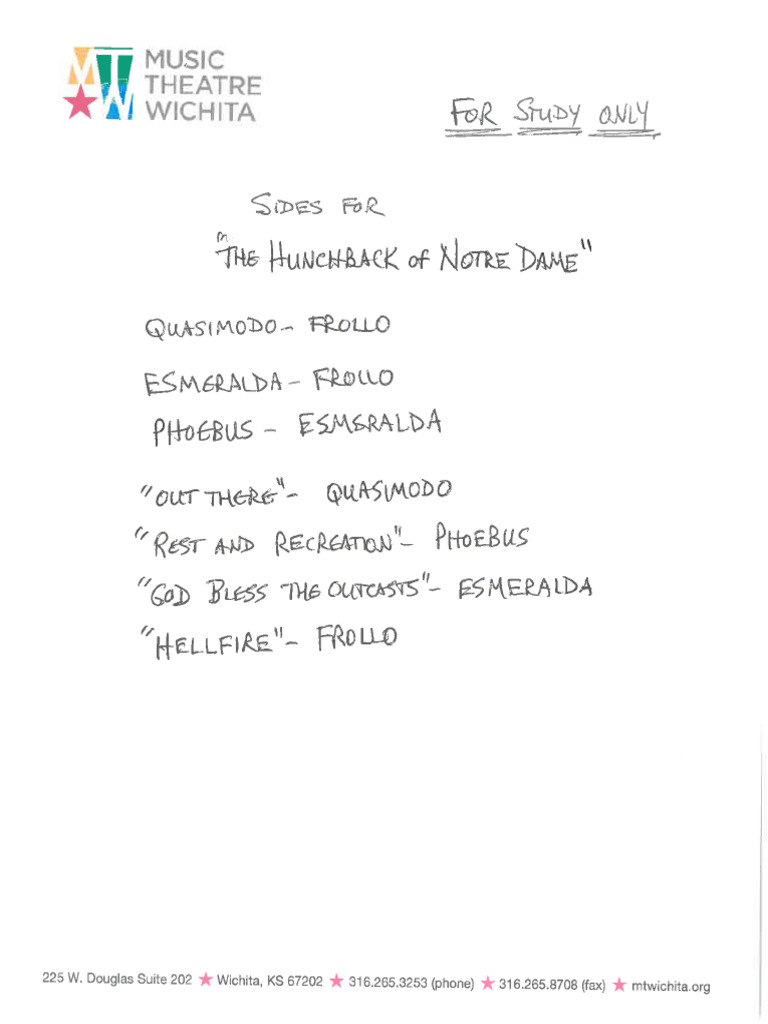 MTW
MUSIC
THEATRE
WICHITA
FOR STUDY ONLY
SIDES FOR
"THE HUNCHBACK of NOTRE DAME"
QUASIMODO - FROLLO
ESMERALDA - FROLLO
PHOEBUS - ESMERALDA
"OUT THERE" - QUASIMODO
"REST AND RECREATION" - PHOEBUS
"GOD BLESS THE OUTCASTS" - ESMERALDA
"HELLFIRE" - FROLLO
225 W. Douglas Suite 202 ★ Wichita, KS 67202 ★ 316.265.3253 (phone) ★ 316.265.8708 (fax) ★ mtwichita.org